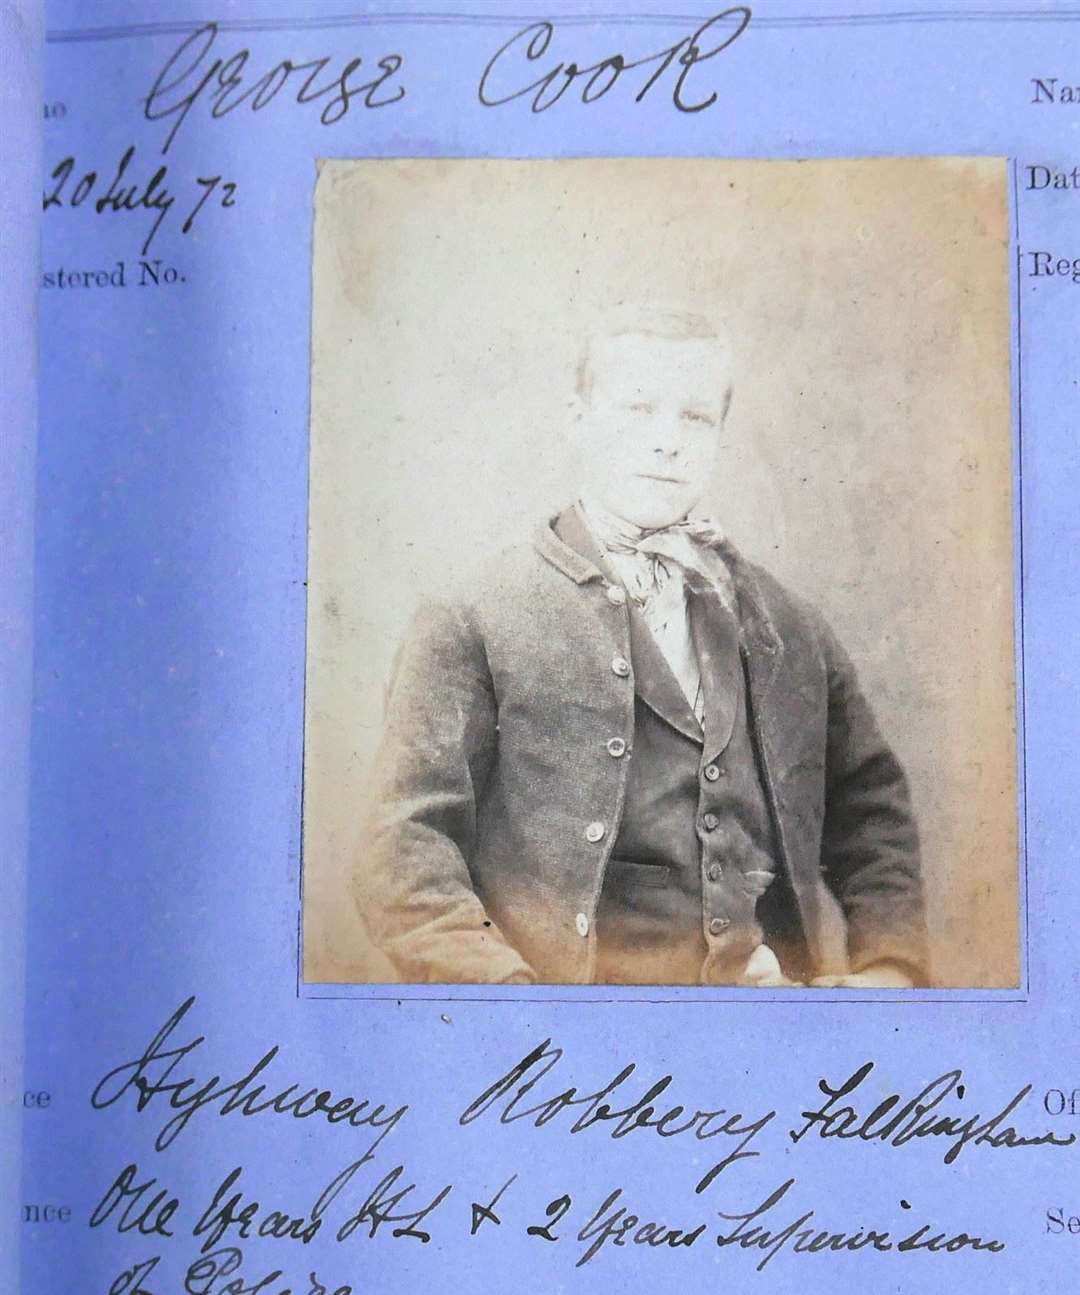 George Cook
Nar
20 July 72
Dat
stered No.
Reg
Hyhway Robbery Falkingham
ce
Of
One Years HL & 2 Years Supervision
nce
Se
of Police